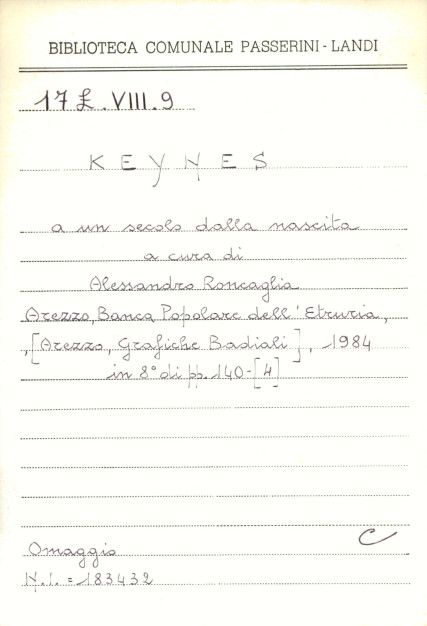 BIBLIOTECA COMUNALE PASSERINI - LANDI
17 £. VIII. 9
KEYNES
a un secolo dalla nascita
a cura di
Alessandro Roncaglia
Arezzo, Banca Popolare dell'Etruria,
, [Arezzo, Grafiche Badiali], 1984
in 8° di pp. 140-[4]
C
Omaggio
N.i. = 183432